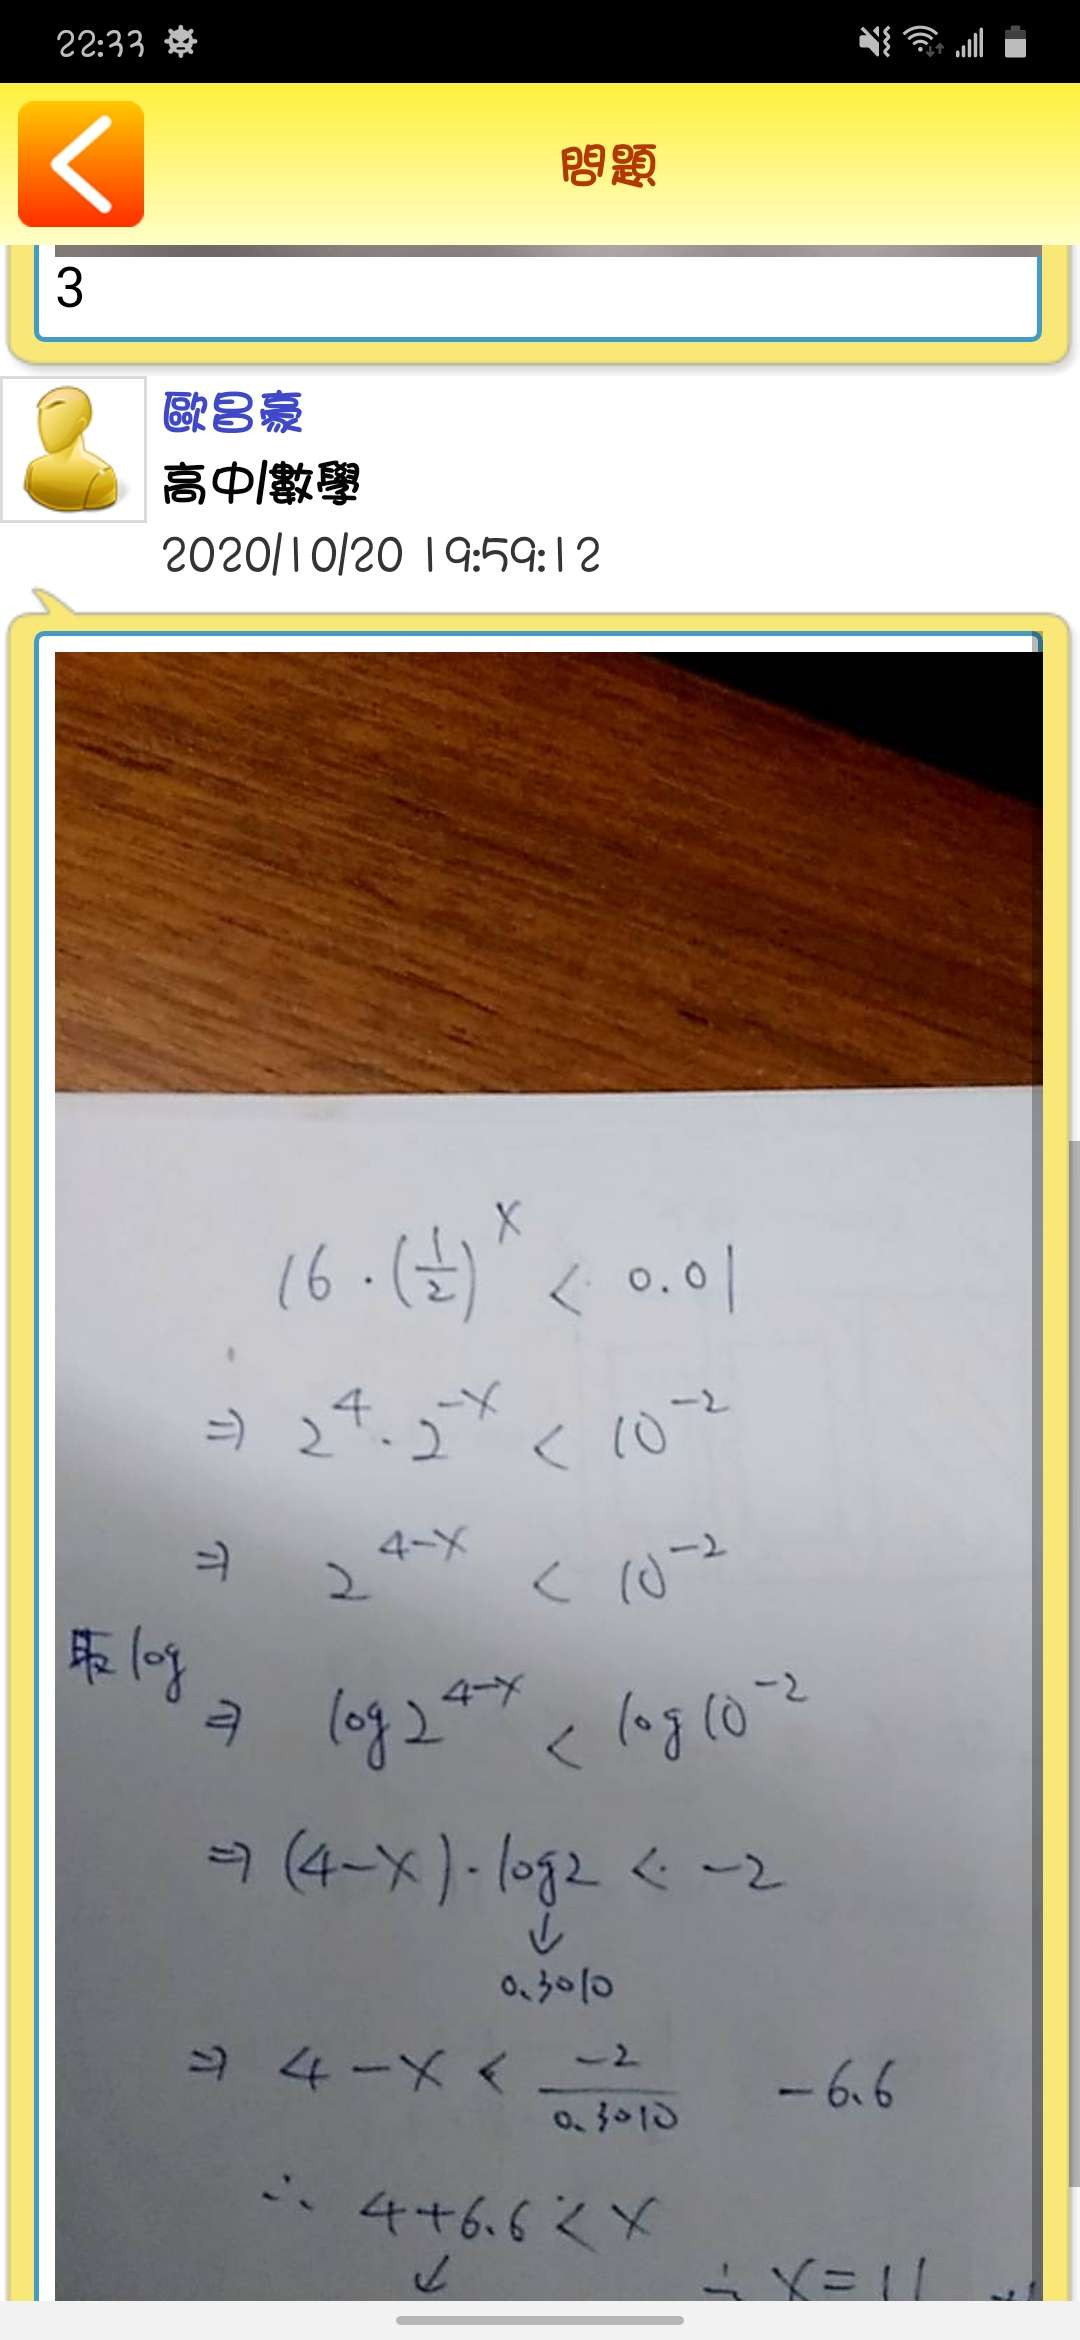 22:33
問題
3
歐昌豪
高中/數學
2020/10/20 19:59:12
16·(1/2)^x < 0.01
⇒ 2^4·2^-x < 10^-2
⇒ 2^4-x < 10^-2
取log
⇒ log2^4-x < log10^-2
⇒ (4-x)·log2 < -2
↓
0.3010
⇒ 4-x < -2/0.3010 -6.6
∴ 4+6.6 < x
↓
∴ x=11